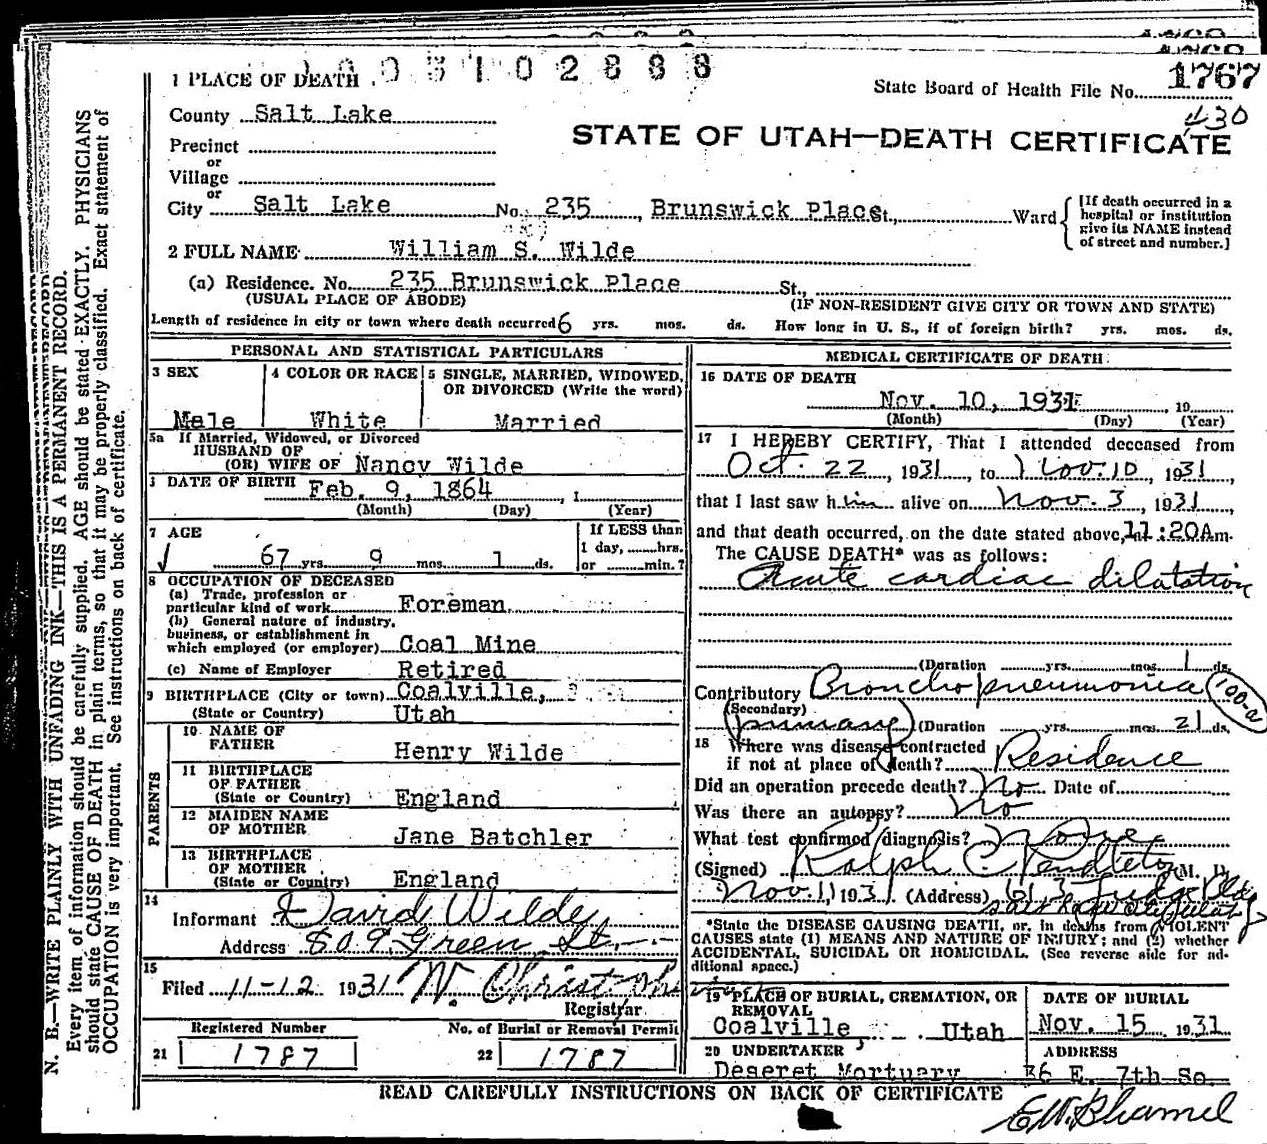 1003102888
1 PLACE OF DEATH
State Board of Health File No. 1767
430
County Salt Lake
STATE OF UTAH—DEATH CERTIFICATE
Precinct
or
Village
or
City Salt Lake No. 235, Brunswick Place St., Ward
[If death occurred in a hospital or institution give its NAME instead of street and number.]
2 FULL NAME William S. Wilde
(a) Residence. No. 235 Brunswick Place St.,
(USUAL PLACE OF ABODE) (IF NON-RESIDENT GIVE CITY OR TOWN AND STATE)
Length of residence in city or town where death occurred 6 yrs. mos. ds. How long in U. S., if of foreign birth? yrs. mos. ds.
PERSONAL AND STATISTICAL PARTICULARS
3 SEX
Male
4 COLOR OR RACE
White
5 SINGLE, MARRIED, WIDOWED, OR DIVORCED (Write the word)
Married
5a If Married, Widowed, or Divorced
HUSBAND OF
(OR) WIFE OF Nancy Wilde
DATE OF BIRTH Feb. 9, 1864, 1
(Month) (Day) (Year)
7 AGE
67 yrs. 9 mos. 1 ds.
If LESS than
1 day, hrs.
or min.?
8 OCCUPATION OF DECEASED
(a) Trade, profession or
particular kind of work Foreman
(b) General nature of industry,
business, or establishment in
which employed (or employer) Coal Mine
(c) Name of Employer Retired
9 BIRTHPLACE (City or town) Coalville,
(State or Country) Utah
PARENTS
10 NAME OF
FATHER Henry Wilde
11 BIRTHPLACE
OF FATHER
(State or Country) England
12 MAIDEN NAME
OF MOTHER Jane Batchler
13 BIRTHPLACE
OF MOTHER
(State or Country) England
14
Informant David Wilde
Address 809 Green St.
15
Filed 11-12 1931 W. Christopherson
Registrar
Registered Number
21 1787
No. of Burial or Removal Permit
22 1787
MEDICAL CERTIFICATE OF DEATH
16 DATE OF DEATH
Nov. 10, 1931, 19
(Month) (Day) (Year)
17 I HEREBY CERTIFY, That I attended deceased from
Oct. 22, 1931, to Nov. 10, 1931,
that I last saw him alive on Nov. 3, 1931,
and that death occurred, on the date stated above, 11:20A m.
The CAUSE DEATH* was as follows:
Acute cardiac dilatation
(Duration yrs. mos. 1 ds.
Contributory Bronchopneumonia
100-2
(Secondary)
(primary) (Duration yrs. mos. 21 ds.
18 Where was disease contracted
if not at place of death? Residence
Did an operation precede death? No Date of
Was there an autopsy? No
What test confirmed diagnosis? None
(Signed) Ralph C. Pendleton (M. D.
Nov. 11, 1931. (Address) 613 Judge Bldg
Salt Lake City Utah
*State the DISEASE CAUSING DEATH, or, in deaths from VIOLENT
CAUSES state (1) MEANS AND NATURE OF INJURY; and (2) whether
ACCIDENTAL, SUICIDAL OR HOMICIDAL. (See reverse side for additional space.)
19 PLACE OF BURIAL, CREMATION, OR
REMOVAL
Coalville Utah
DATE OF BURIAL
Nov. 15 1931
20 UNDERTAKER
Deseret Mortuary
ADDRESS
36 E. 7th So.
READ CAREFULLY INSTRUCTIONS ON BACK OF CERTIFICATE
N. B.—WRITE PLAINLY WITH UNFADING INK—THIS IS A PERMANENT RECORD.
Every item of information should be carefully supplied. AGE should be stated EXACTLY. PHYSICIANS
should state CAUSE OF DEATH in plain terms, so that it may be properly classified. Exact statement of
OCCUPATION is very important. See instructions on back of certificate.